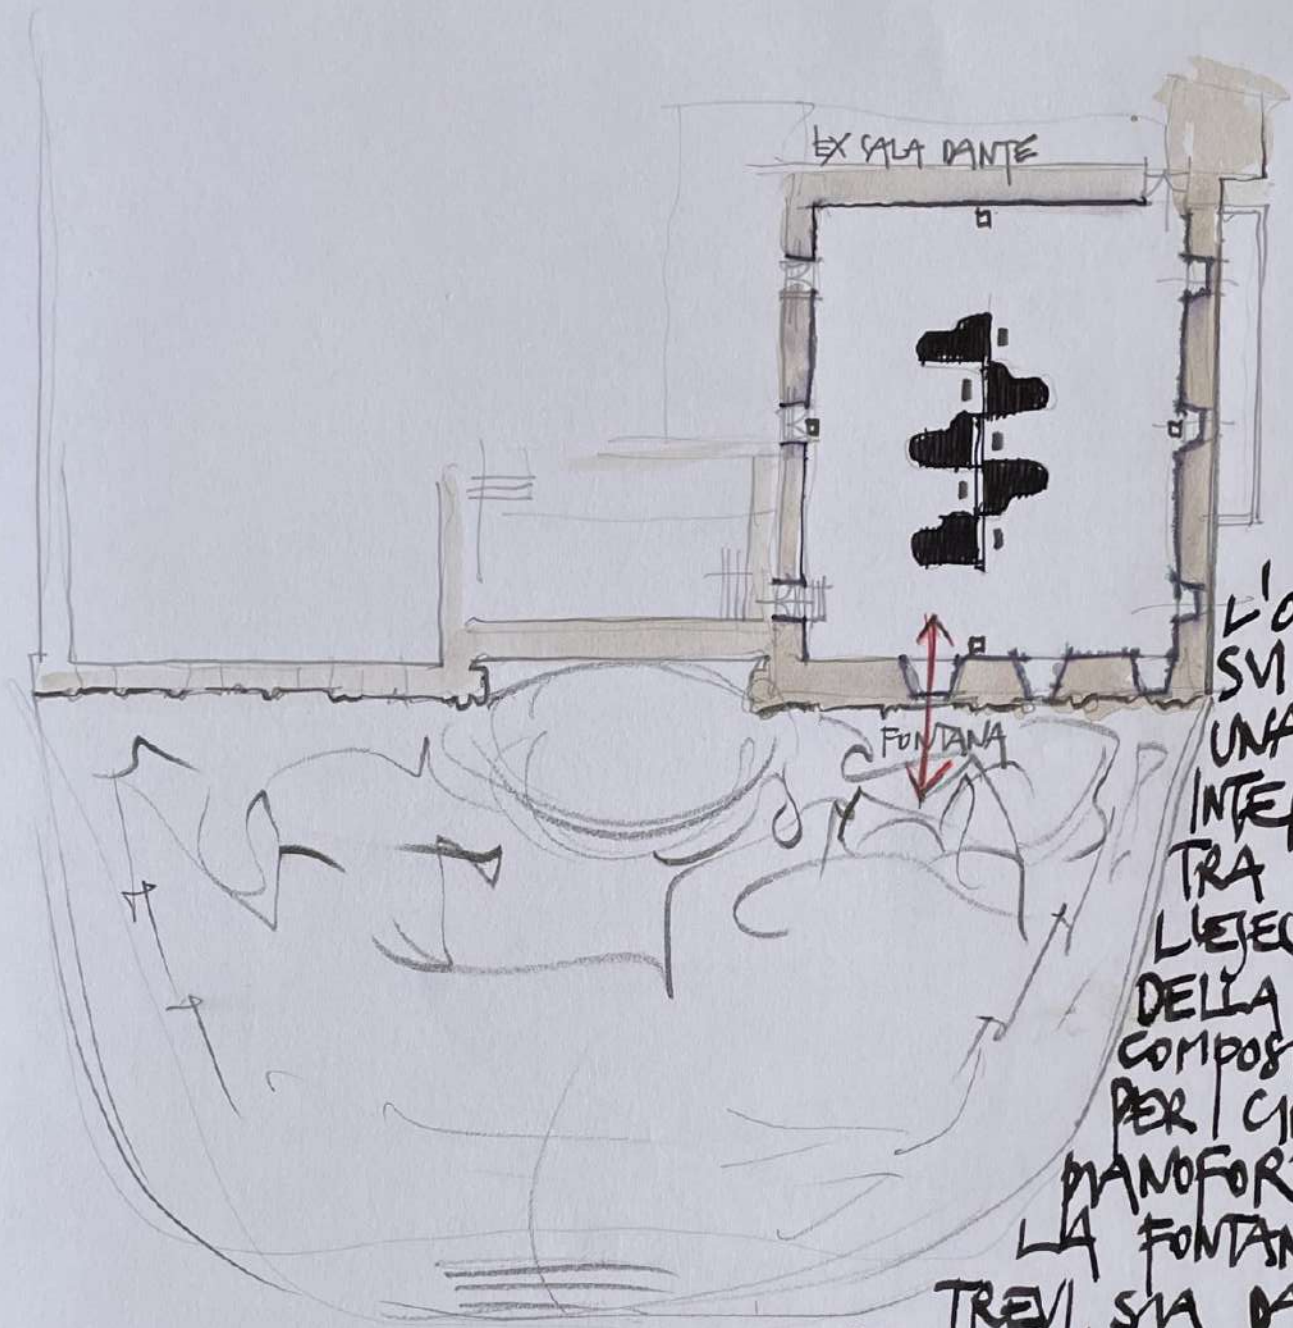 EX SALA DANTE
FONTANA
L'O
SVI
UNA
INTE
TRA
L'ESEC
DELLA
COMPOS
PER CI
PIANOFOR
LA FONTAN
TREVI SIA DA